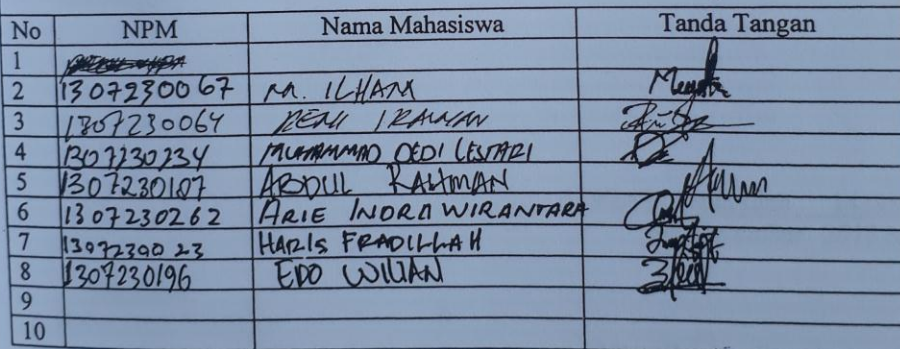 No NPM Nama Mahasiswa Tanda Tangan
1
2 1307230067 M. ILHAM
3 1307230064 RENI IRAWAN
4 1307230234 MUHAMMAD DEDI LESTARI
5 1307230187 ABDUL RAHMAN
6 1307230262 ARIE INDRA WIRANTARA
7 1307230023 HARIS FRADILLAH
8 1307230196 EDO WILIAN
9
10